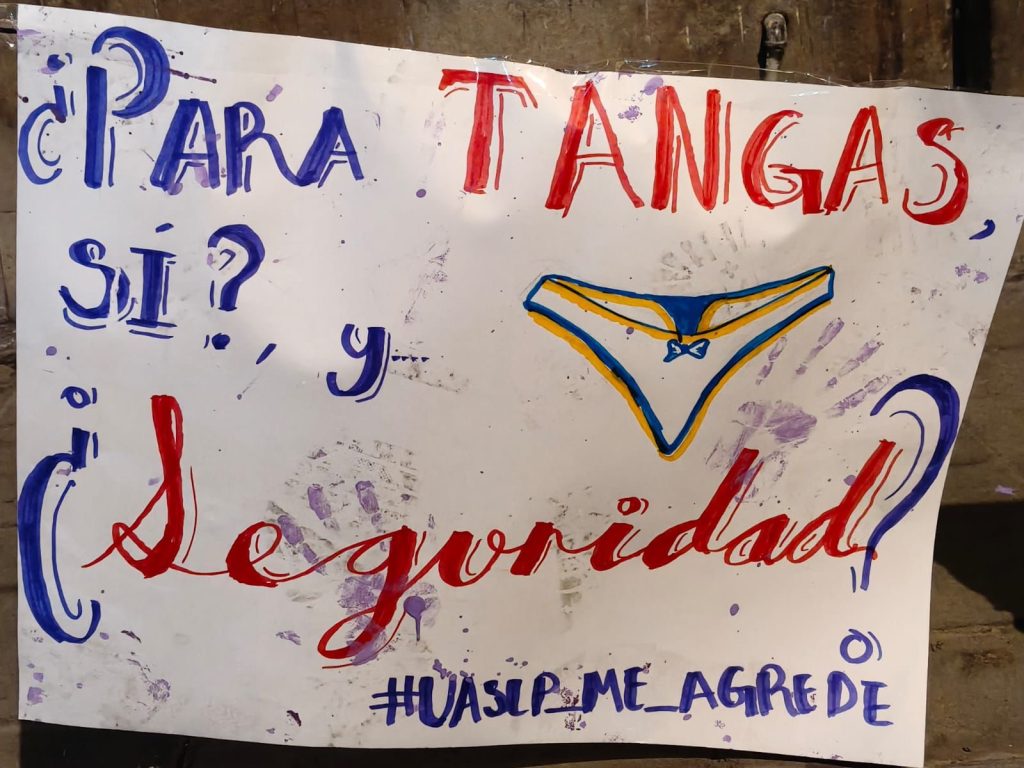 ¿PARA TANGAS,
SÍ?, y....
¿Seguridad?
#UASLP_ME_AGREDE